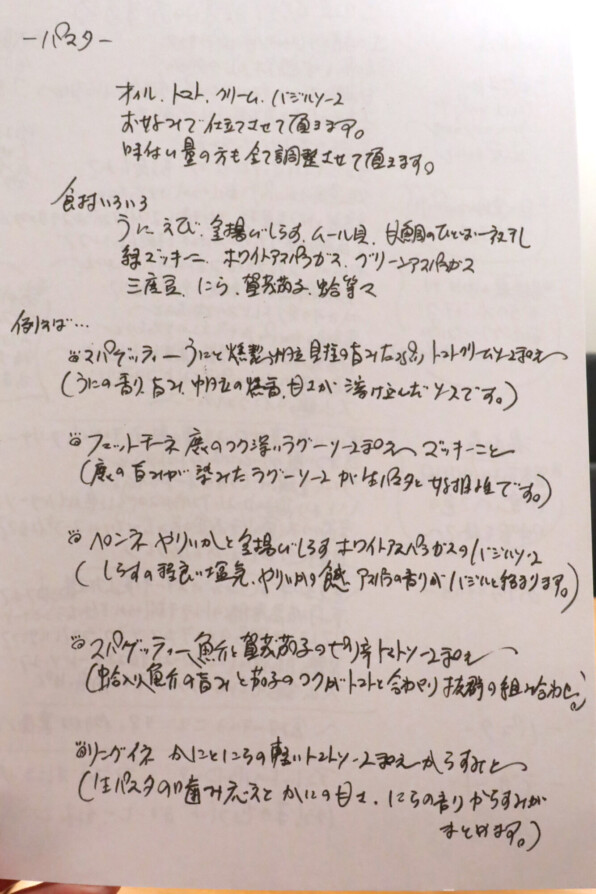 ーパスター
オイル、トマト、クリーム、バジルソース
お好みで仕立てさせて頂きます。
味付い量の方も全て調整させて頂きます。
食材いろいろ
うに、えび、釜揚げしらす、ムール貝、甘鯛のひと塩一夜干し
緑ズッキーニ、ホワイトアスパラガス、グリーンアスパラガス
三度豆、にら、賀茂茄子、蛤等々
例えば…
スパゲッティーうにと燻製帆立貝柱の旨みたっぷり トマトクリームソースまぜ
(うにの香り、旨み、帆立の燻香、甘さが溶け込んだソースです。)
フェットチーネ 鹿のコク深いラグーソースまぜ ズッキーニと
(鹿の旨みが染みたラグーソースが生パスタと好相性です。)
ペンネ やりいかと釜揚げしらす ホワイトアスパラガスのバジルソース
(しらすの程良い塩気、やりいかの食感 アスパラの香りがバジルと絡まります。)
スパゲッティー 魚介と賀茂茄子のピリ辛トマトソースまぜ
(蛤入り魚介の旨みと茄子のコクがトマトと合わさり抜群の組み合わせ。)
リングイネ かにとにらの軽いトマトソースまぜ からすみと
(生パスタの噛み応えとかにの甘さ、にらの香りからすみが
まとめます。)